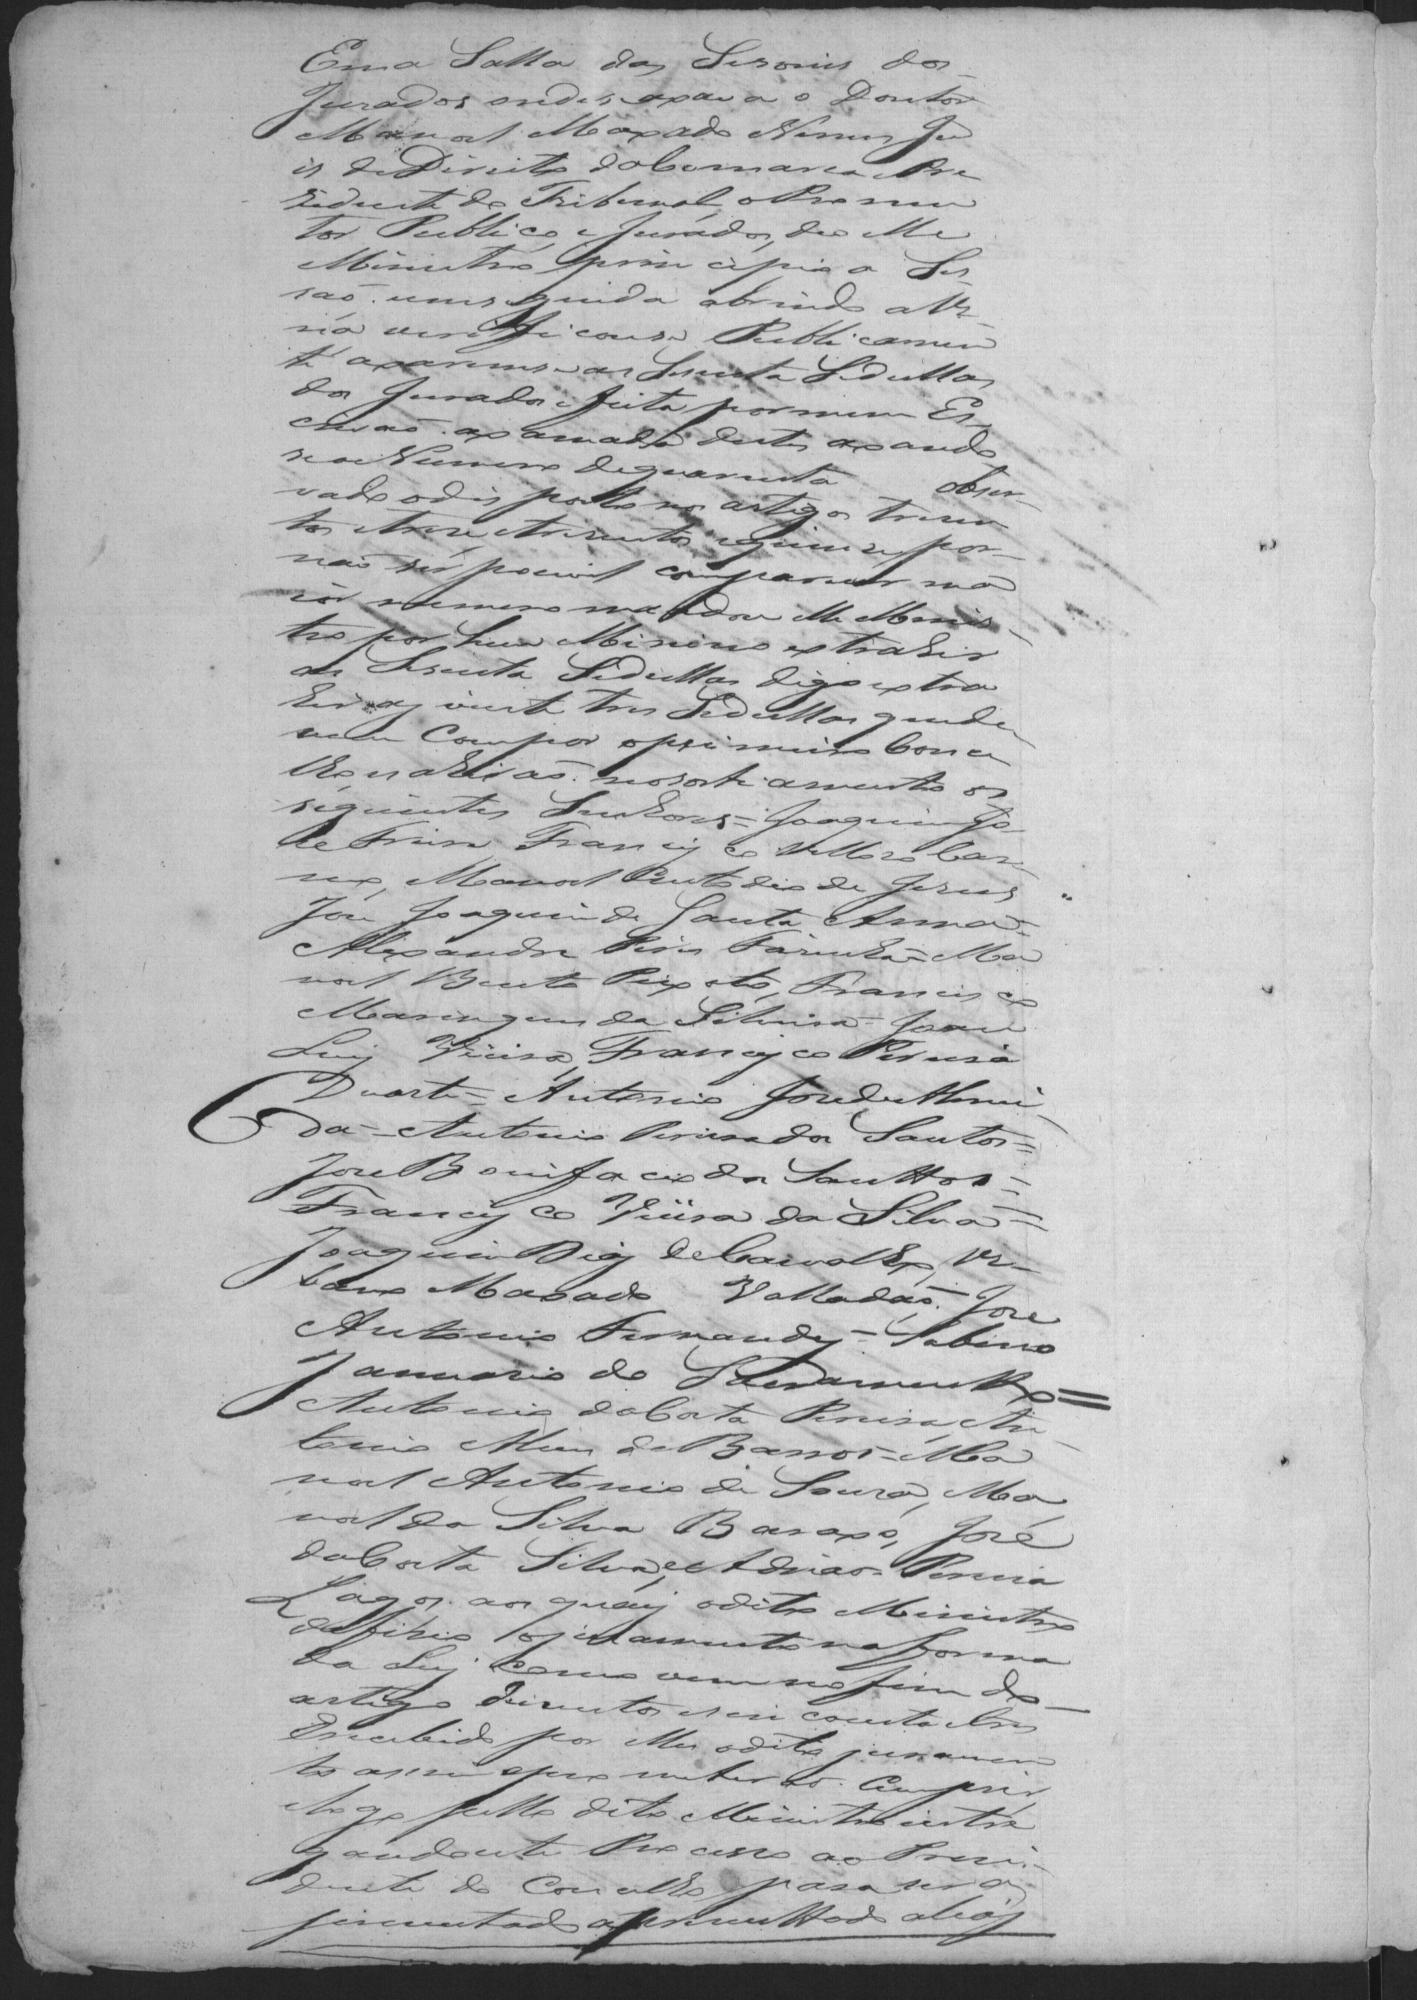 Em a Salla das Sesoens dos
Jurados onde se axava o Doutor
Manoel Maxado Nunes Ju
is de Direito da Comarca e Pre
zidente do Tribunal, o Promu
tor Publico, e Jurados, deo Me
Ministro principio a Ses
saõ. em seguida abrindo a Ur
na verificouse Publicamen
te axaremse as Secenta Sedullas
dos Jurados e feita por mim Es
crivaõ. a xamada destes axando
se o Numero de quarenta obser
vado o disposto nos artigos trezen
tos e treze e trezentos e quinze por
naõ ser pocivel comparecer ma
ior numero mandou Me Minis
tro por hum Minino extrahir
as Secenta Sedullas digo extra
hir as vinte tres Sedullas que de
vem Compor o primeiro Conce
lho e sahiraõ. no sorteamento os
seguintes Senhores = Joaquim Jo
se Freire Francisco Vellozo Car
mo, Manoel Custodio de Jezus
José Joaquim de Santa Anna =
Alexandre Pires Farinha = Ma
noel Bento Peixoto, Francisco
Marinques da Silveira = Joaõ
Luis Vieira, Francisco Pereira
Duarte = Antonio Jose de Almei
da = Antonio Pereira dos Santos =
Jose Bonifacio dos Santtos =
Francisco Vieira da Silva =
Joaquim Dias de Carvalho, Ur
bano Maxado Valladaõ. José
Antonio Fernandes = Sabino
Januario do Sacramentto =
Antonio da Costa Pereira, An
tonio Alves de Barros = Ma
noel Antonio de Souza, Ma
noel da Silva Baraxo, José
da Costa Silva, e Adriaõ Pereira
Lagos. aos quais o dito Ministro
defirio o juramento na forma
da Lei como vem no fim do
artigo duzentos e cincoenta e tres
e recebido por elles o dito juramen
to assim o prometeraõ. Cumprir
e logo pello dito Ministro entre
gando este Processo ao Prezi
dente do Concelho para ser a
prezentado a prometttado alias